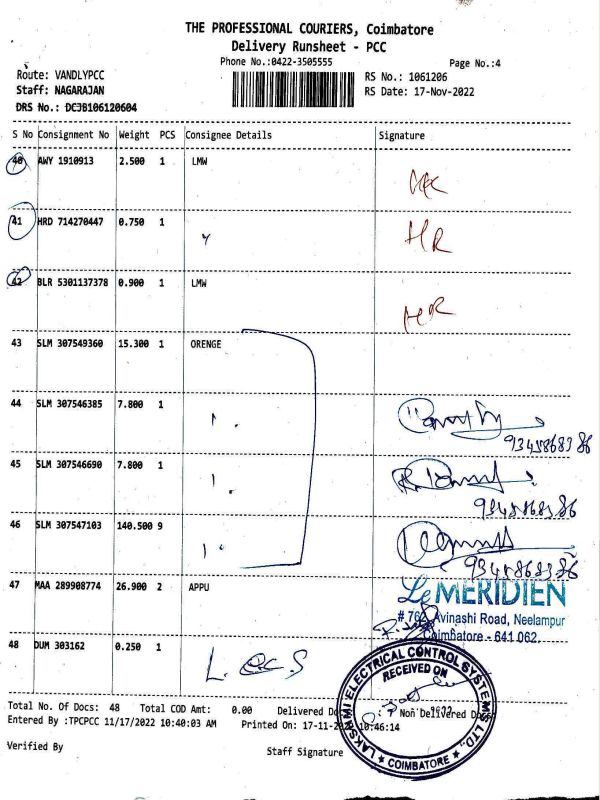 THE PROFESSIONAL COURIERS, Coimbatore
Delivery Runsheet - PCC
Phone No.:0422-3505555 Page No.:4
Route: VANDLYPCC RS No.: 1061206
Staff: NAGARAJAN RS Date: 17-Nov-2022
DRS No.: DCJB106120604
S No Consignment No Weight PCS Consignee Details Signature
40 AWY 1910913 2.500 1 LMW
41 HRD 714270447 0.750 1
HR
42 BLR 5301137378 0.900 1 LMW
HR
43 SLM 307549360 15.300 1 ORENGE
44 SLM 307546385 7.800 1
9345868386
45 SLM 307546690 7.800 1
9345868386
46 SLM 307547103 140.500 9
9345868386
47 MAA 289908774 26.900 2 APPU
Le MERIDIEN
Avinashi Road, Neelampur
Coimbatore - 641 062.
48 DUM 303162 0.250 1 L.e.c.S
LAKSHMI ELECTRICAL CONTROL SYSTEMS LTD.,
RECEIVED ON
★ COIMBATORE ★
Total No. Of Docs: 48 Total COD Amt: 0.00 Delivered Non Delivered
Entered By :TPCPCC 11/17/2022 10:40:03 AM Printed On: 17-11-2022 10:46:14
Verified By Staff Signature